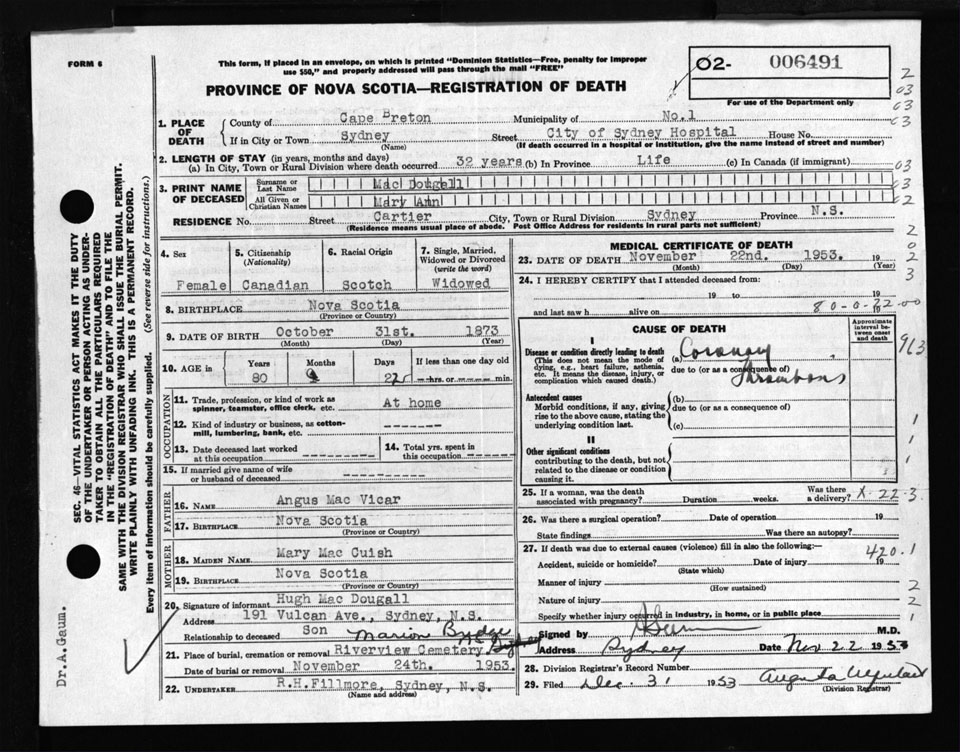 FORM 6
This form, if placed in an envelope, on which is printed "Dominion Statistics—Free, penalty for improper
use $50," and properly addressed will pass through the mail "FREE"
PROVINCE OF NOVA SCOTIA—REGISTRATION OF DEATH
02- 006491
For use of the Department only
1. PLACE OF DEATH
County of Cape Breton Municipality of No.1
If in City or Town Sydney Street City of Sydney Hospital House No.
(Name) (If death occurred in a hospital or institution, give the name instead of street and number)
2. LENGTH OF STAY (in years, months and days)
(a) In City, Town or Rural Division where death occurred 32 years (b) In Province Life (c) In Canada (if immigrant)
3. PRINT NAME OF DECEASED
Surname or Last Name Mac Dougall
All Given or Christian Names Mary Ann
RESIDENCE No. Street Cartier City, Town or Rural Division Sydney Province N.S.
(Residence means usual place of abode. Post Office Address for residents in rural parts not sufficient)
4. Sex Female
5. Citizenship (Nationality) Canadian
6. Racial Origin Scotch
7. Single, Married, Widowed or Divorced (write the word) Widowed
8. BIRTHPLACE Nova Scotia
(Province or Country)
9. DATE OF BIRTH October 31st. 1873
(Month) (Day) (Year)
10. AGE in Years Months Days If less than one day old
80 22 hrs or min.
OCCUPATION
11. Trade, profession, or kind of work as spinner, teamster, office clerk, etc. At home
12. Kind of industry or business, as cotton-mill, lumbering, bank, etc. -------
13. Date deceased last worked at this occupation ---------
14. Total yrs. spent in this occupation --------
15. If married give name of wife or husband of deceased ---------
FATHER
16. NAME Angus Mac Vicar
17. BIRTHPLACE Nova Scotia
(Province or Country)
MOTHER
18. MAIDEN NAME Mary Mac Cuish
19. BIRTHPLACE Nova Scotia
(Province or Country)
20. Signature of informant Hugh Mac Dougall
Address 191 Vulcan Ave., Sydney, N.S.
Relationship to deceased Son Marion
21. Place of burial, cremation or removal Riverview Cemetery
Date of burial or removal November 24th. 1953.
22. UNDERTAKER R.H.Fillmore, Sydney, N.S.
(Name and address)
MEDICAL CERTIFICATE OF DEATH
23. DATE OF DEATH November 22nd. 1953. 19
(Month) (Day) (Year)
24. I HEREBY CERTIFY that I attended deceased from:
19 to 19
and last saw h alive on 19
80-0-22-00
CAUSE OF DEATH
Approximate interval between onset and death
I
Disease or condition directly leading to death
(This does not mean the mode of dying, e.g., heart failure, asthenia, etc. It means the disease, injury, or complication which caused death.)
(a) Coronary
due to (or as a consequence of)
Thrombosis
Antecedent causes
Morbid conditions, if any, giving rise to the above cause, stating the underlying condition last.
(b)
due to (or as a consequence of)
(c)
II
Other significant conditions
contributing to the death, but not related to the disease or condition causing it.
25. If a woman, was the death associated with pregnancy? Duration weeks. Was there a delivery? X-22-3
26. Was there a surgical operation? Date of operation 19
State findings Was there an autopsy?
27. If death was due to external causes (violence) fill in also the following:—
420.1
Accident, suicide or homicide? Date of injury 19
(State which)
Manner of injury
(How sustained)
Nature of injury
Specify whether injury occurred in industry, in home, or in public place
Signed by M.D.
Address Sydney Date Nov 22 1953
28. Division Registrar's Record Number
29. Filed Dec. 31 1953
(Division Registrar)
SEC. 46—VITAL STATISTICS ACT MAKES IT THE DUTY
OF THE UNDERTAKER OR PERSON ACTING AS UNDER-
TAKER TO OBTAIN ALL THE PARTICULARS REQUIRED
IN THE "REGISTRATION OF DEATH" AND TO FILE THE
SAME WITH THE DIVISION REGISTRAR WHO SHALL ISSUE THE BURIAL PERMIT.
WRITE PLAINLY WITH UNFADING INK. THIS IS A PERMANENT RECORD.
Every item of information should be carefully supplied. (See reverse side for instructions.)
Dr.A.Gaum.